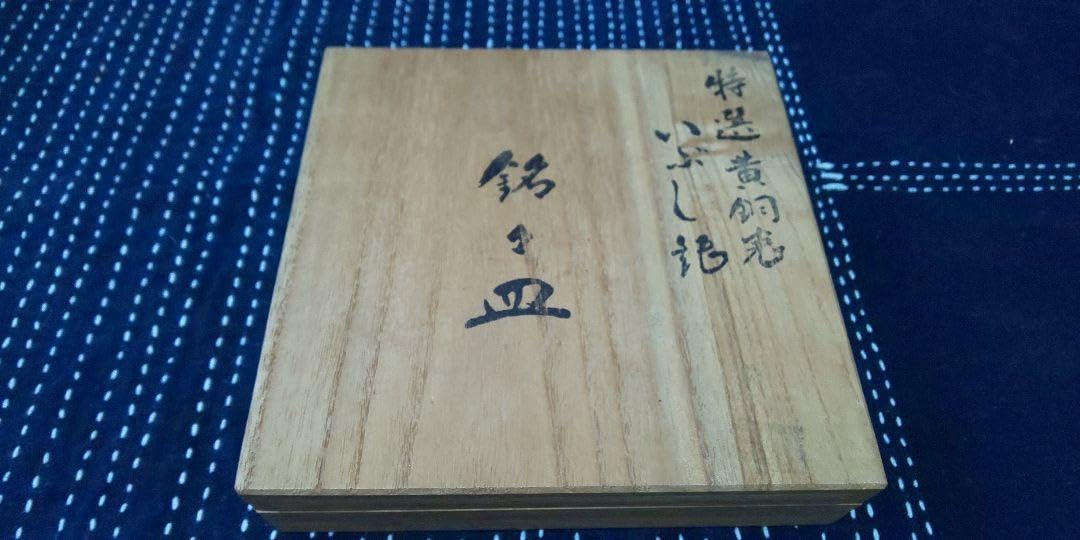 特選黄銅花
いぶし銀
銘々皿